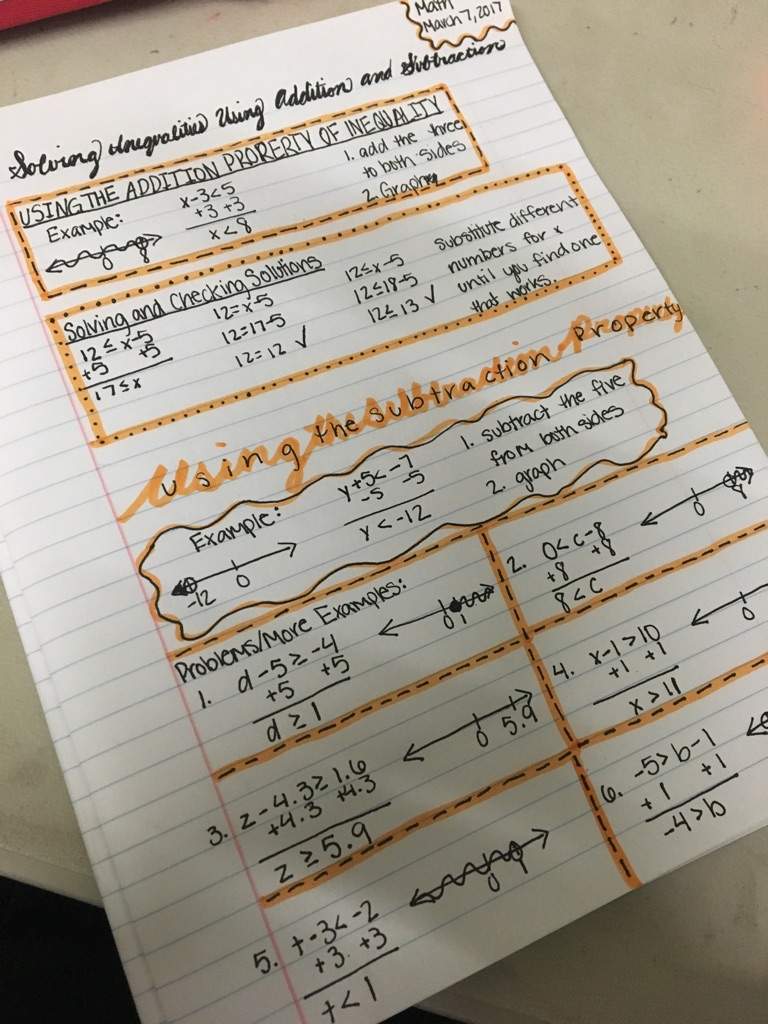 Math
March 7, 2017
Solving Inequalities Using Addition and Subtraction
USING THE ADDITION PRORERTY OF INEQUALITY
Example:
x-3<5
+3 +3
x<8
0 8
1. add the three
to both sides
2. Graph
Solving and Checking Solutions
12≤x-5
+5 +5
17≤x
12=x-5
12=17-5
12=12 ✓
12≤x-5
12≤18-5
12≤13 ✓
substitute different
numbers for x
until you find one
that works.
Using the Subtraction Property
Example:
y+5<-7
-5 -5
y<-12
-12 0
1. subtract the five
from both sides
2. graph
Problems/More Examples:
1. d-5≥-4
+5 +5
d≥1
0 1
2. 0<c-8
+8 +8
8<c
0 8
3. z-4.3≥1.6
+4.3 +4.3
z≥5.9
0 5.9
4. x-1>10
+1 +1
x>11
0
5. t-3<-2
+3 +3
t<1
0 1
6. -5>b-1
+1 +1
-4>b